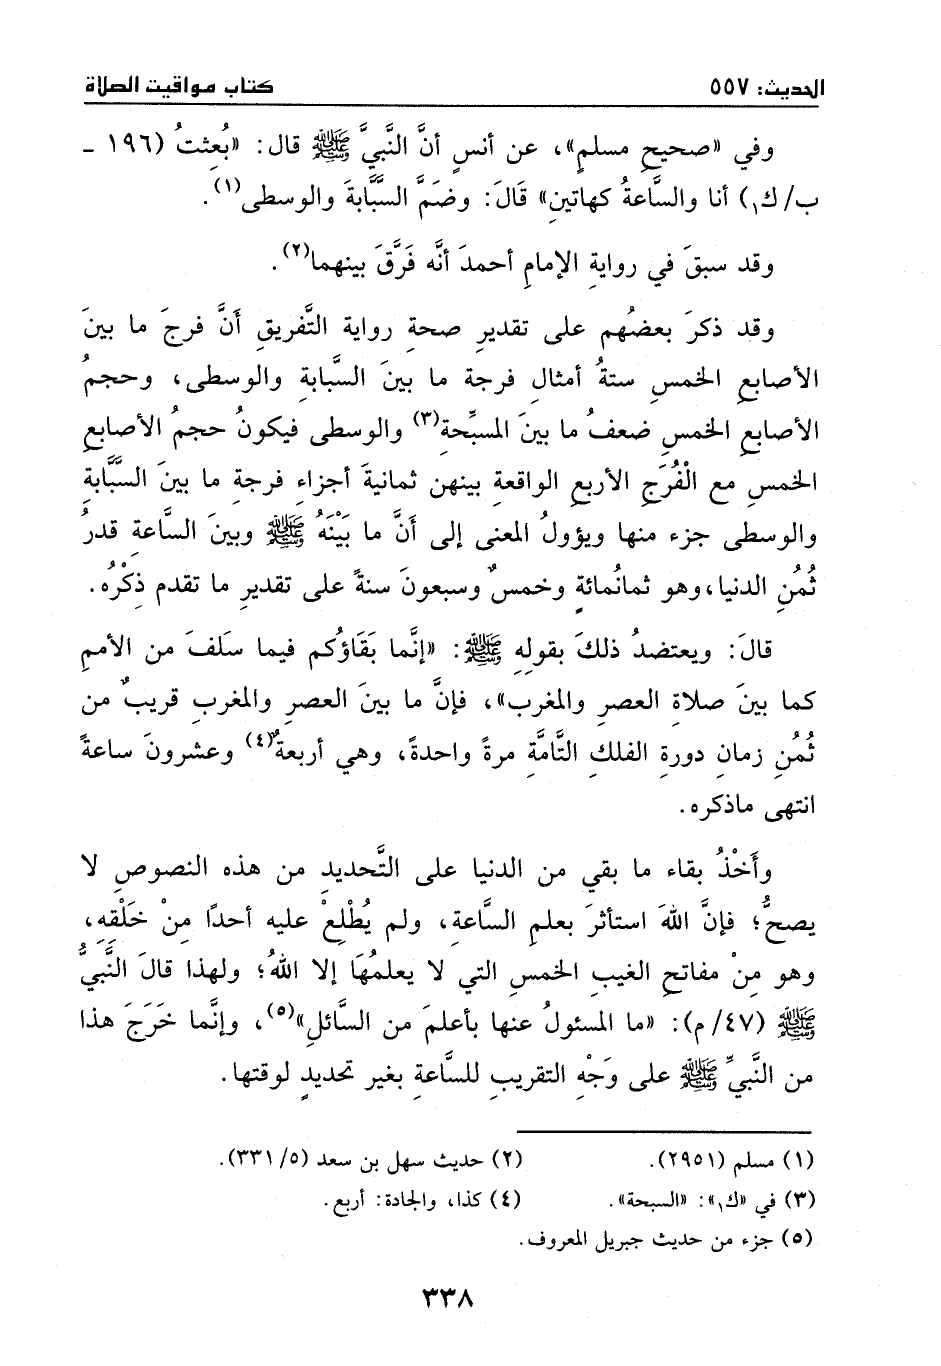 الحديث: ٥٥٧
كتاب مواقيت الصلاة
وفي «صحيحِ مسلمٍ»، عن أنسٍ أنَّ النَّبيَّ ﷺ قال: «بُعثتُ (١٩٦ -
ب/ك١) أنا والسَّاعةُ كهاتينِ» قَالَ: وضَمَّ السَّبَّابةَ والوسطى(١).
وقد سبقَ في روايةِ الإمامِ أحمدَ أنَّه فَرَّقَ بينهما(٢).
وقد ذكرَ بعضُهم على تقديرِ صحةِ رواية التَّفريقِ أَنَّ فرجَ ما بينَ
الأصابعِ الخمسِ ستةُ أمثالِ فرجة ما بينَ السَّبابةِ والوسطى، وحجمُ
الأصابعِ الخمسِ ضعفُ ما بينَ المسبِّحةِ(٣) والوسطى فيكونُ حجمُ الأصابعِ
الخمسِ مع الْفُرَجِ الأربعِ الواقعةِ بينهن ثمانيةَ أجزاءِ فرجةِ ما بينَ السَّبَّابةِ
والوسطى جزء منها ويؤولُ المعنى إلى أنَّ ما بَيْنَهُ ﷺ وبينَ السَّاعةِ قدرُ
ثُمُنِ الدنيا، وهو ثمانُمائةٍ وخمسٌ وسبعونَ سنةً على تقديرِ ما تقدم ذِكْرُه.
قالَ: ويعتضدُ ذلكَ بقولِهِ ﷺ: «إنَّما بَقَاؤُكم فيما سلفَ من الأممِ
كما بينَ صلاةِ العصرِ والمغربِ»، فإنَّ ما بينَ العصرِ والمغربِ قريبٌ من
ثُمُنِ زمانِ دورةِ الفلكِ التَّامَّةِ مرةً واحدةً، وهي أربعةٌ(٤) وعشرونَ ساعةً
انتهى ماذكره.
وأَخْذُ بقاء ما بقي من الدنيا على التَّحديدِ من هذه النصوصِ لا
يصحُّ؛ فإنَّ اللهَ استأثرَ بعلمِ السَّاعةِ، ولم يُطْلِعْ عليه أحدًا مِنْ خَلْقِهِ،
وهو مِنْ مفاتحِ الغيبِ الخمسِ التي لا يعلمُهَا إلا اللهُ؛ ولهذا قالَ النَّبيُّ
ﷺ (٤٧/م): «ما المسئولُ عنها بأعلمَ من السَّائلِ»(٥)، وإنَّما خَرَجَ هذا
من النَّبيِّ ﷺ على وَجْهِ التقريبِ للسَّاعةِ بغير تحديدٍ لوقتها.
(١) مسلم (٢٩٥١).
(٢) حديث سهل بن سعد (٥/ ٣٣١).
(٣) في «ك١»: «السبحة».
(٤) كذا، والجادة: أربع.
(٥) جزء من حديث جبريل المعروف.
٣٣٨